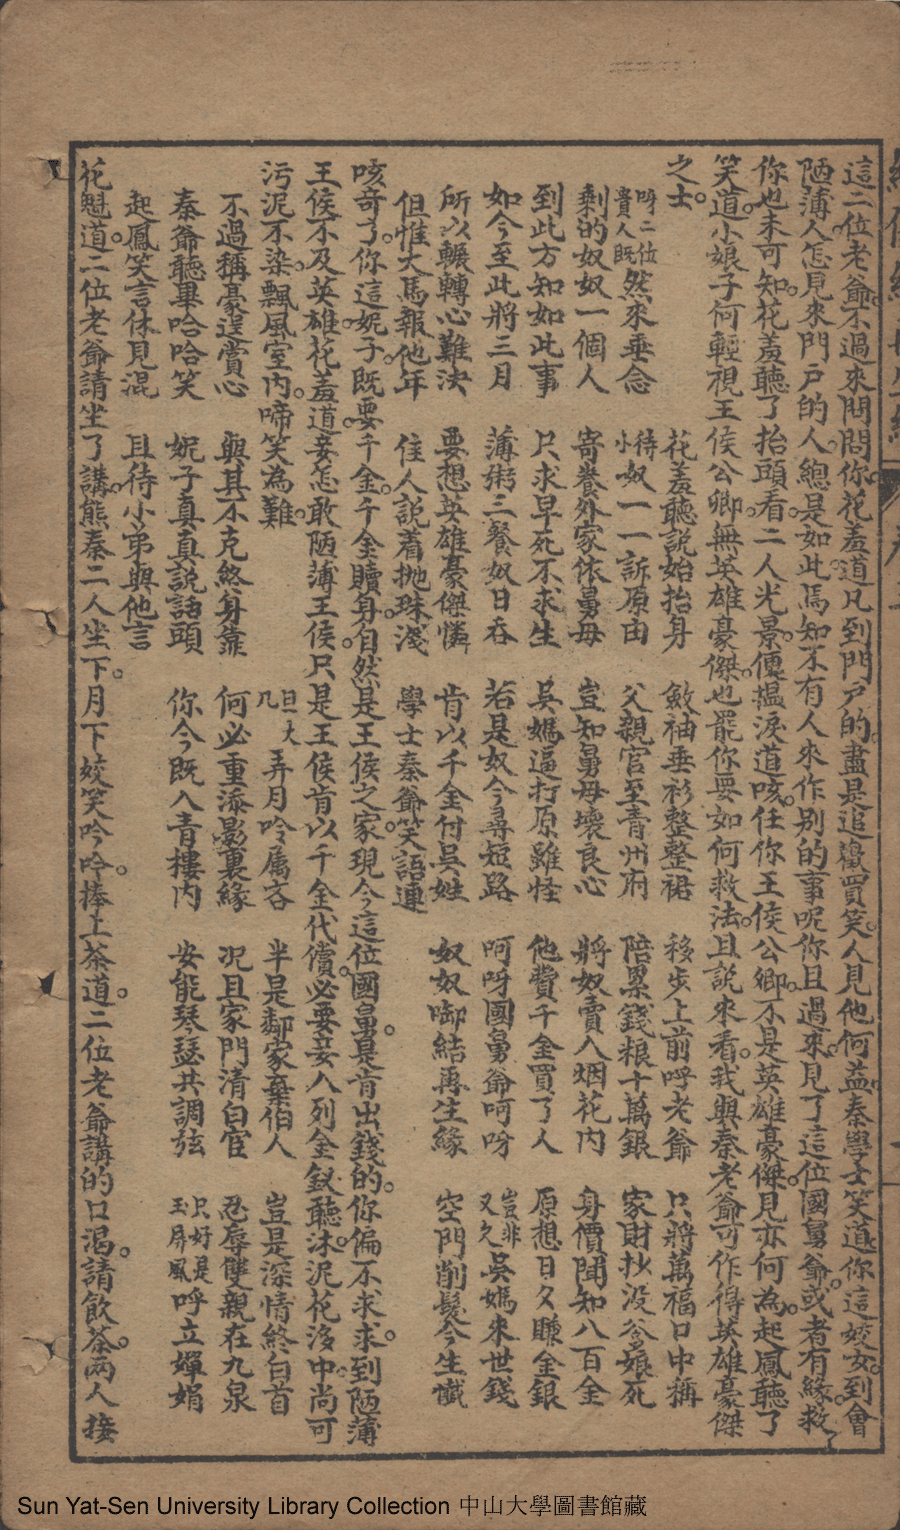 這二位老爺。不過來問問你。花羞道。凡到門戶的。盡是追歡買笑。人見他何益。秦學士笑道。你這姣女。到會
陋薄人怎見來門戶的人。總是如此。焉知不有人來作别的事呢。你且過來。見了這位國舅爺。或者有緣救了
你也未可知。花羞聽了抬頭看。二人光景。便揾淚道。咳。任你王侯公卿。不是英雄豪傑。見亦何為。起鳳聽了
笑道。小娘子何輕視王侯公卿。無英雄豪傑。也罷。你要如何救法。且説來看。我與秦老爺可作得英雄豪傑
之士。
花羞聽説始抬身 斂袖垂衫整整裙 移步上前呼老爺 只將萬福口中稱
呀二位貴人既然來垂念 待小奴一一訴原由 父親官至青州府 陪累錢粮十萬銀 家財抄没爹娘死
剩的奴奴一個人 寄養外家依舅母 豈知舅母壞良心 將奴賣入烟花内 身價聞知八百金
到此方知如此事 只求早死不求生 吳媽逼打原難怪 他費千金買了人 原想日夕賺金銀
如今至此將三月 薄粥三餐奴日吞 若是奴今尋短路 呵呀國舅爺呵呀 豈非又欠吳媽來世錢
所以輾轉心難決 要想英雄豪傑憐 肯以千金付吳姓 奴奴啣結再生緣 空門削髮今生懺
但惟犬馬報他年 佳人説着抛珠淚 學士秦爺笑語連
咳奇了。你這妮子。既要千金。千金贖身。自然是王侯之家。現今這位國舅。是肯出錢的。你偏不求。求到陋薄
王侯不及英雄。花羞道。妾怎敢陋薄王侯。只是王侯肯以千金代償。必要妾入列金釵。聽沐泥花沒中。尚可
污泥不染。飄風室内。啼笑為難。
且大几弄月吟属吝 半是鄰家棄伯人 豈是深情終白首
不過稱豪逞賞心 與其不克終身靠 何必重添影裏緣 况且家門清白宦 忍辱雙親在九泉
秦爺聽畢哈哈笑 妮子真真説話頭 你今既入青樓内 安能琴瑟共調弦 只好是玉屏風呼立嬋娟
起鳳笑言休見混 且待小弟與他言
花魁道。二位老爺請坐了講。熊秦二人坐下。月下姣笑吟吟。捧上茶道。二位老爺講的口渴。請飲茶。兩人接
Sun Yat-Sen University Library Collection 中山大學圖書館藏